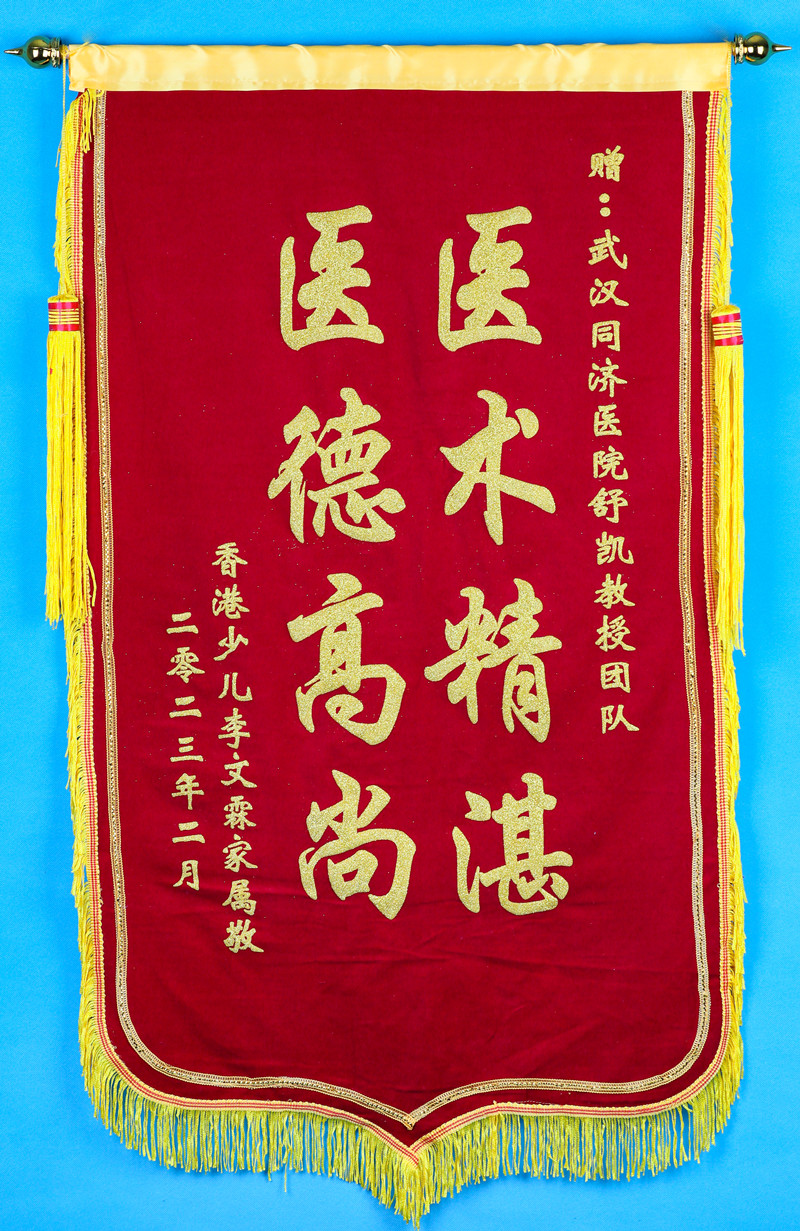 赠：武汉同济医院舒凯教授团队
医术精湛
医德高尚
香港少儿李文霖家属敬
二零二三年二月